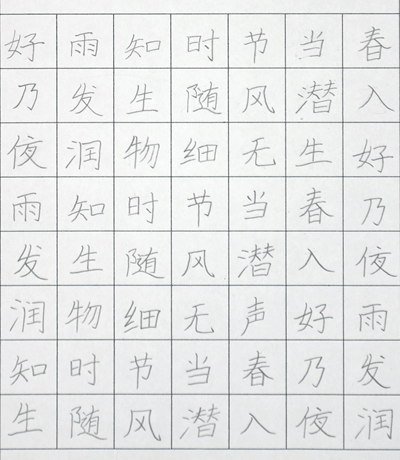 好雨知时节当春
乃发生随风潜入
夜润物细无生好
雨知时节当春乃
发生随风潜入夜
润物细无声好雨
知时节当春乃发
生随风潜入夜润